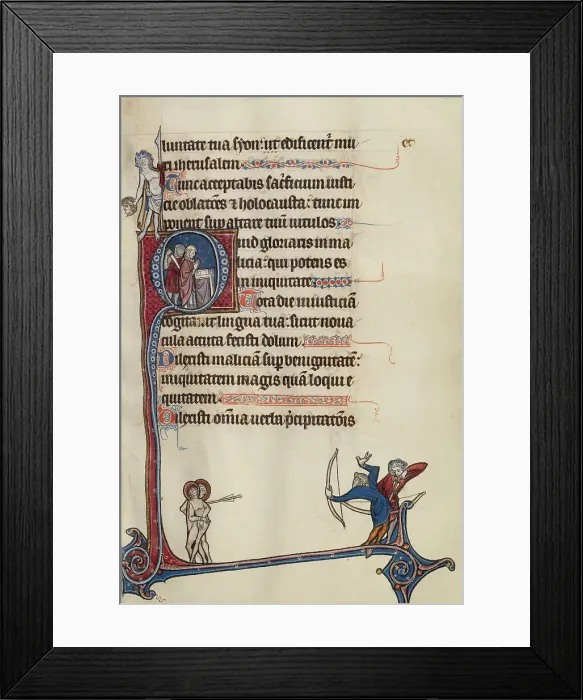 luntate tua syon: ut edificent᷑ mu
ri iherusalem et
Tunc acceptabis sac᷑ficium iusti
cie oblatões ⁊ holocausta: tunc im
ponent sup altare tuũ uitulos
Quid gloriaris in ma
licia: qui potens es
in iniquitate
Tota die iniusticiã
cogitauit lingua tua: sicut noua
cula acuta fecisti dolum
Dilexisti maliciã sup benignitatẽ:
iniquitatem magis quã loqui e
quitatem
Dilexisti om̃ia uerba p̃cipitatõis